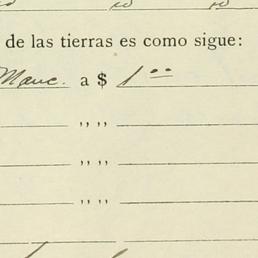 de las tierras es como sigue:
Manc. a $ 1 00
,, ,,
,, ,,
,, ,,